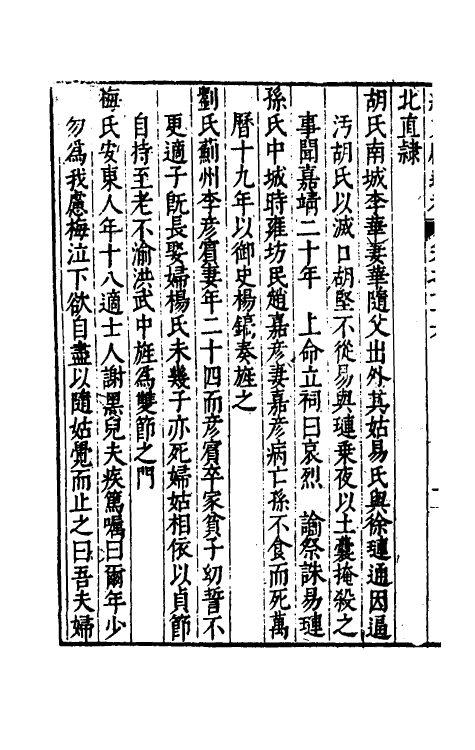 北直隷
胡氏南城李華妻華隨父出外其姑易氏與徐璉通因逼
汚胡氏以滅口胡堅不從易與璉乗夜以土囊掩殺之
事聞嘉靖二十年　上命立祠曰哀烈　諭祭誅易璉
孫氏中城時雍坊民趙嘉彦妻嘉彦病亡孫不食而死萬
曆十九年以御史楊鎬奏旌之
劉氏薊州李彦賔妻年二十四而彦賔卒家貧子幼誓不
更適子旣長娶婦楊氏未幾子亦死婦姑相依以貞節
自持至老不渝洪武中旌為雙節之門
梅氏安東人年十八適士人謝黑兒夫疾篤囑曰爾年少
勿為我慮梅泣下欲自盡以隨姑覺而止之曰吾夫婦